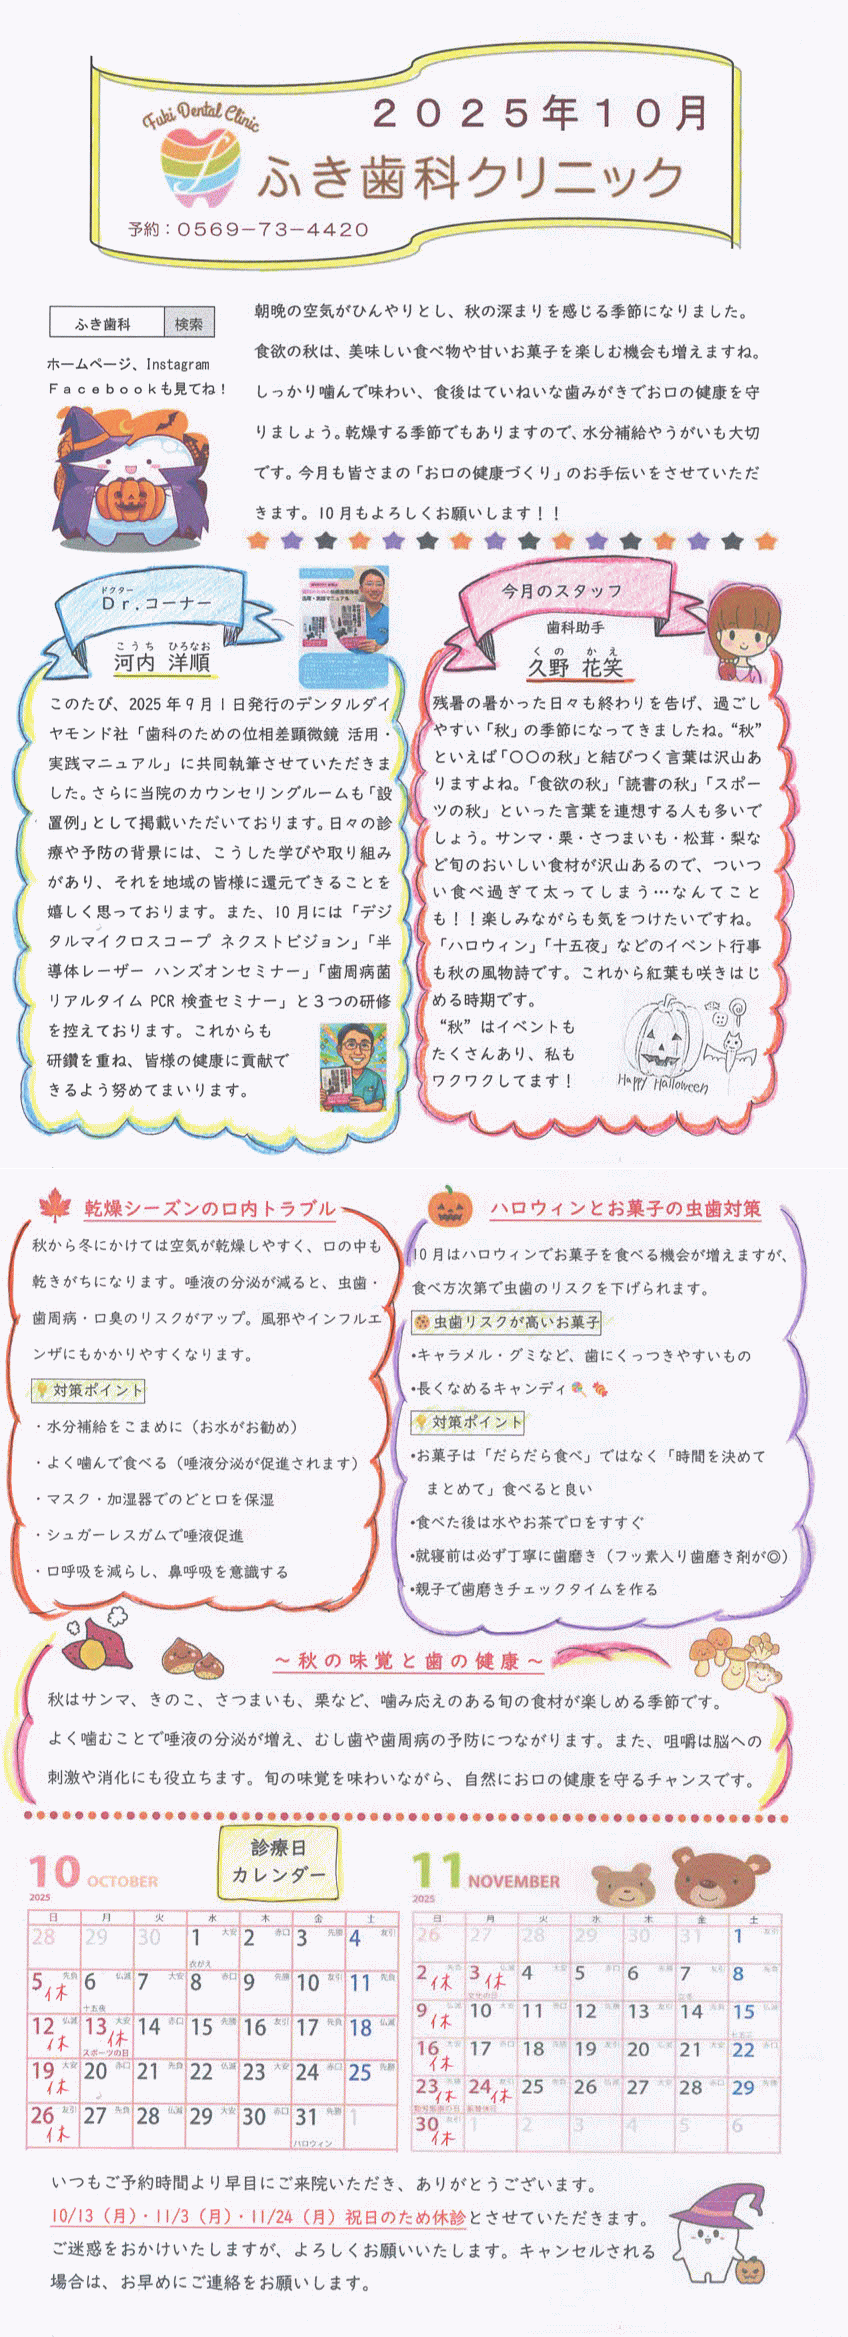 Fuki Dental Clinic
2025年10月
ふき歯科クリニック
予約：0569-73-4420
ふき歯科 検索
ホームページ、Instagram
Facebookも見てね！
朝晩の空気がひんやりとし、秋の深まりを感じる季節になりました。
食欲の秋は、美味しい食べ物や甘いお菓子を楽しむ機会も増えますね。
しっかり噛んで味わい、食後はていねいな歯みがきでお口の健康を守
りましょう。乾燥する季節でもありますので、水分補給やうがいも大切
です。今月も皆さまの「お口の健康づくり」のお手伝いをさせていただ
きます。10月もよろしくお願いします！！
ドクター
Dr.コーナー
こうち ひろなお
河内 洋順
このたび、2025年9月1日発行のデンタルダイ
ヤモンド社「歯科のための位相差顕微鏡 活用・
実践マニュアル」に共同執筆させていただきま
した。さらに当院のカウンセリングルームも「設
置例」として掲載いただいております。日々の診
療や予防の背景には、こうした学びや取り組み
があり、それを地域の皆様に還元できることを
嬉しく思っております。また、10月には「デジ
タルマイクロスコープ ネクストビジョン」「半
導体レーザー ハンズオンセミナー」「歯周病菌
リアルタイム PCR 検査セミナー」と3つの研修
を控えております。これからも
研鑽を重ね、皆様の健康に貢献で
きるよう努めてまいります。
今月のスタッフ
歯科助手
くの かえ
久野 花笑
残暑の暑かった日々も終わりを告げ、過ごし
やすい「秋」の季節になってきましたね。“秋”
といえば「〇〇の秋」と結びつく言葉は沢山あ
りますよね。「食欲の秋」「読書の秋」「スポー
ツの秋」といった言葉を連想する人も多いで
しょう。サンマ・栗・さつまいも・松茸・梨な
ど旬のおいしい食材が沢山あるので、ついつ
い食べ過ぎて太ってしまう…なんてこと
も！！楽しみながらも気をつけたいですね。
「ハロウィン」「十五夜」などのイベント行事
も秋の風物詩です。これから紅葉も咲きはじ
める時期です。
“秋”はイベントも
たくさんあり、私も
ワクワクしてます！
Happy Halloween
乾燥シーズンの口内トラブル
秋から冬にかけては空気が乾燥しやすく、口の中も
乾きがちになります。唾液の分泌が減ると、虫歯・
歯周病・口臭のリスクがアップ。風邪やインフルエ
ンザにもかかりやすくなります。
対策ポイント
・水分補給をこまめに（お水がお勧め）
・よく噛んで食べる（唾液分泌が促進されます）
・マスク・加湿器でのどと口を保湿
・シュガーレスガムで唾液促進
・口呼吸を減らし、鼻呼吸を意識する
ハロウィンとお菓子の虫歯対策
10月はハロウィンでお菓子を食べる機会が増えますが、
食べ方次第で虫歯のリスクを下げられます。
虫歯リスクが高いお菓子
•キャラメル・グミなど、歯にくっつきやすいもの
•長くなめるキャンディ
対策ポイント
•お菓子は「だらだら食べ」ではなく「時間を決めて
まとめて」食べると良い
•食べた後は水やお茶で口をすすぐ
•就寝前は必ず丁寧に歯磨き（フッ素入り歯磨き剤が◎）
•親子で歯磨きチェックタイムを作る
～秋の味覚と歯の健康～
秋はサンマ、きのこ、さつまいも、栗など、噛み応えのある旬の食材が楽しめる季節です。
よく噛むことで唾液の分泌が増え、むし歯や歯周病の予防につながります。また、咀嚼は脳への
刺激や消化にも役立ちます。旬の味覚を味わいながら、自然にお口の健康を守るチャンスです。
診療日
カレンダー
10 OCTOBER
2025
日 月 火 水 木 金 土
28 29 30 1 大安 2 赤口 3 先勝 4 友引
衣がえ
5 先負 休 6 仏滅 7 大安 8 赤口 9 先勝 10 友引 11 先負
十五夜
12 仏滅 休 13 大安 休 14 赤口 15 先勝 16 友引 17 先負 18 仏滅
スポーツの日
19 大安 休 20 赤口 21 先負 22 仏滅 23 大安 24 赤口 25 先勝
26 友引 休 27 先負 28 仏滅 29 大安 30 赤口 31 先勝 1
ハロウィン
11 NOVEMBER
2025
日 月 火 水 木 金 土
26 27 28 29 30 31 1
2 休 3 休 4 5 6 7 8
文化の日 立冬
9 休 10 11 12 13 14 15
七五三
16 休 17 18 19 20 21 22
23 休 24 休 25 26 27 28 29
勤労感謝の日 振替休日
30 休 1 2 3 4 5 6
いつもご予約時間より早目にご来院いただき、ありがとうございます。
10/13（月）・11/3（月）・11/24（月）祝日のため休診とさせていただきます。
ご迷惑をおかけいたしますが、よろしくお願いいたします。キャンセルされる
場合は、お早めにご連絡をお願いします。